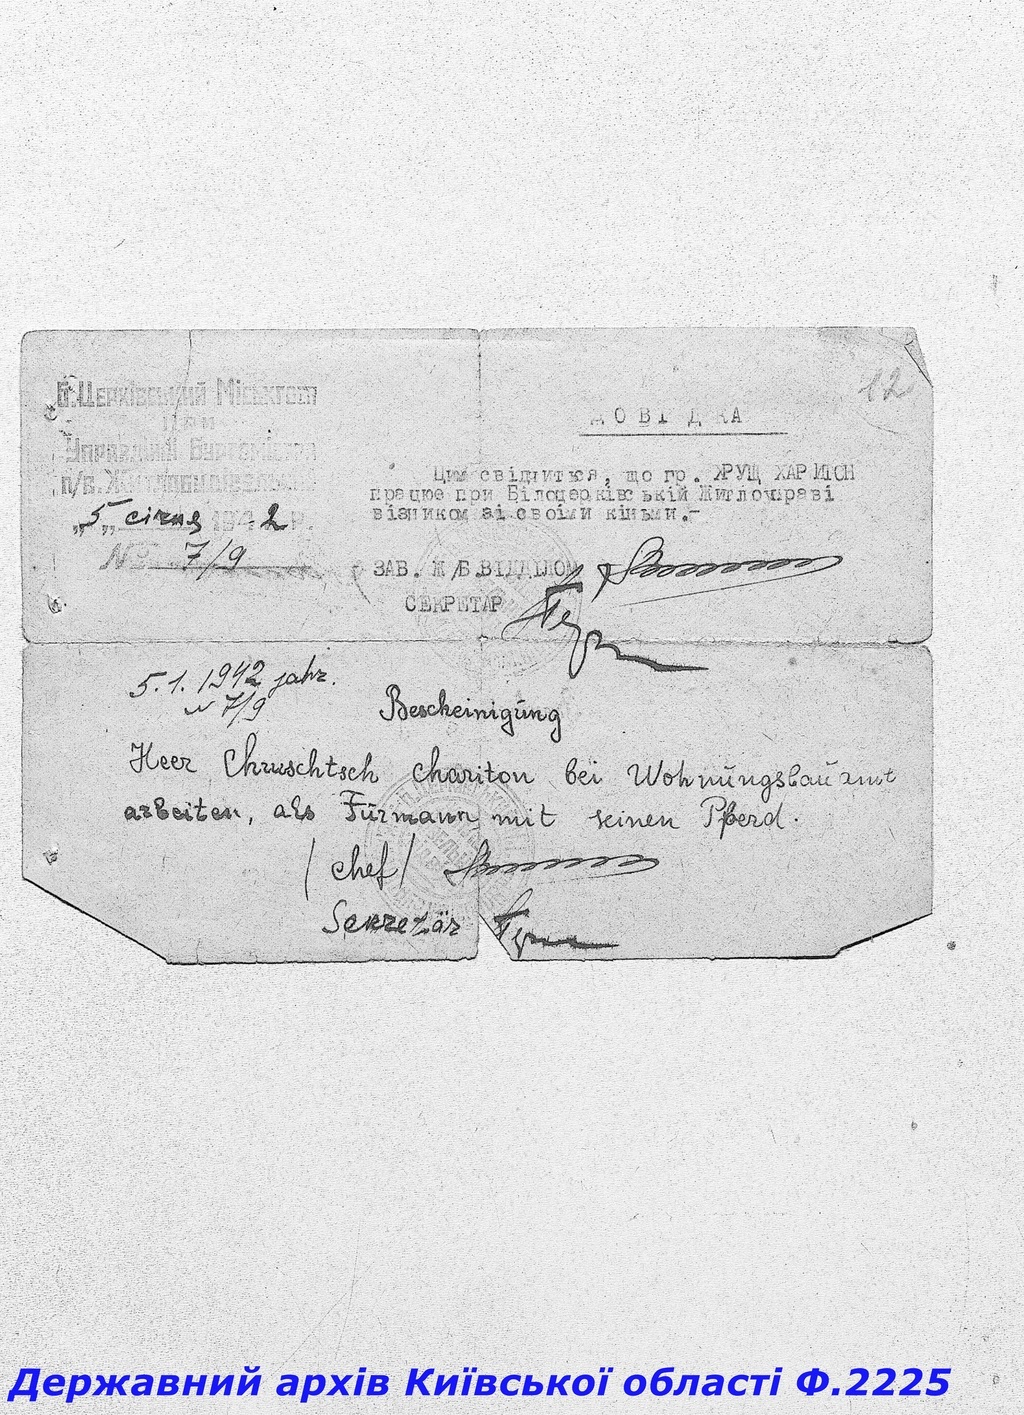 12
Б.Церківський Міськгосп
при
Управлінні Бургомістра
„5„ січня 1942 р.
№ 7/9
ДОВІДКА
Цим свідчиться, що гр. ХРУЩ ХАРИТОН
працює при Білоцерківській Житлоуправі
візником зі своїми кіньми.-
ЗАВ. Ж/Б.ВІДДІЛОМ
СЕКРЕТАР
5.1.1942 jahr.
N 7/9
Bescheinigung
Heer Chruschtsch Chariton bei Wohnungsbauamt
arbeiten, als Fürmann mit seinen Pferd.
/chef/
Sekretär
Державний архів Київської області Ф.2225